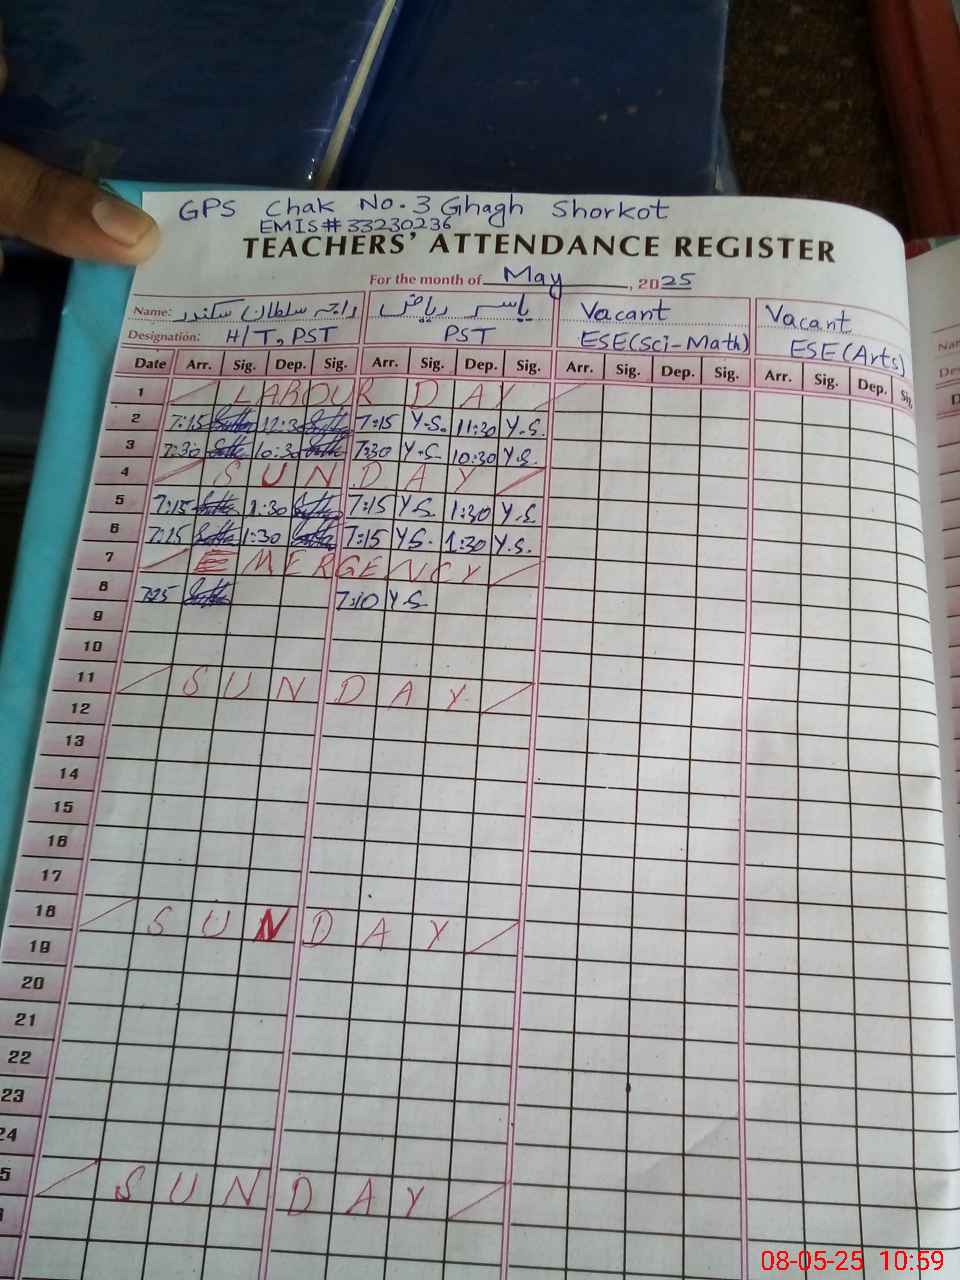 GPS Chak No. 3 Ghagh Shorkot
EMIS# 33230236
TEACHERS' ATTENDANCE REGISTER
For the month of May, 2025
Name: راجہ سلطان سکندر یاسر ریاض Vacant Vacant
Designation: H/T, PST PST ESE(Sci-Math) ESE(Arts)
Date Arr. Sig. Dep. Sig. Arr. Sig. Dep. Sig. Arr. Sig. Dep. Sig. Arr. Sig. Dep. Sig.
1 LABOUR DAY
2 7:15 7:15 Y.S. 11:30 Y.S.
3 7:30 10:30 7:30 Y.S. 10:30 Y.S.
4 SUNDAY
5 7:15 1:30 7:15 Y.S. 1:30 Y.S.
6 7:15 1:30 7:15 Y.S. 1:30 Y.S.
7 EMERGENCY
8 7:10 Y.S.
9
10
11 SUNDAY
12
13
14
15
16
17
18 SUNDAY
19
20
21
22
23
24
5 SUNDAY
08-05-25 10:59